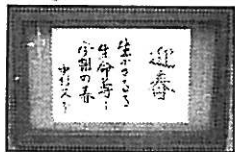 迎春
生かさるる
生命尊し
今朝の春
中村久子